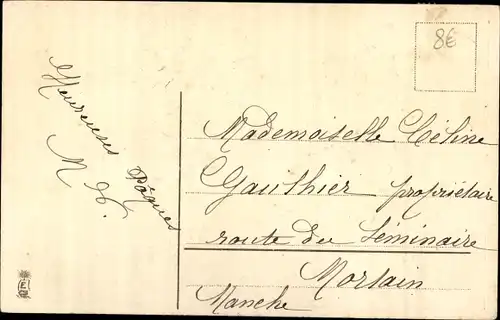 8€
Heureuses Pâques
Mademoiselle Céline
Gauthier propriétaire
route du Séminaire
Mortain
Manche